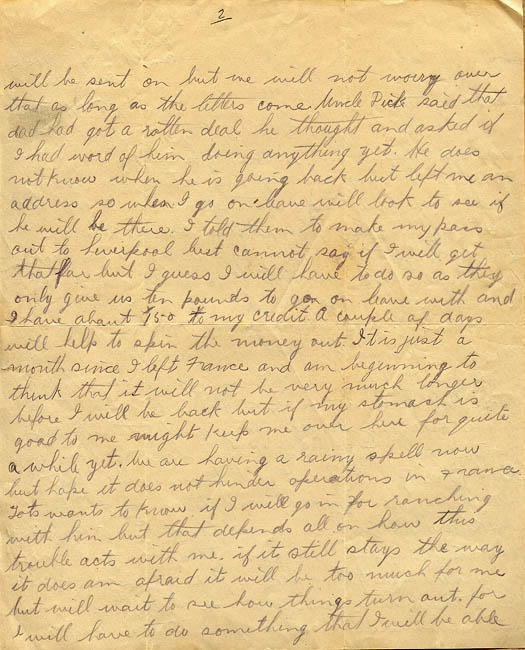 2
will be sent on but we will not worry over
that as long as the letters come. Uncle Dick said that
dad had got a rotten deal he thought and asked if
I had word of him doing anything yet. He does
not know when he is going back but left me an
address so when I go on leave will look to see if
he will be there. I told them to make my pass
out to Liverpool but cannot say if I will get
that far but I guess I will have to do so as they
only give us ten pounds to go on leave with and
I have about $150 to my credit. A couple of days
will help to spin the money out. It is just a
month since I left France and am beginning to
think that it will not be very much longer
before I will be back but if my stomach is
good to me might keep me over here for quite
a while yet. We are having a rainy spell now
but hope it does not hinder operations in France.
Tots wants to know if I will go in for ranching
with him but that depends all on how this
trouble acts with me. if it still stays the way
it does am afraid it will be too much for me
but will wait to see how things turn out. for
I will have to do something that I will be able